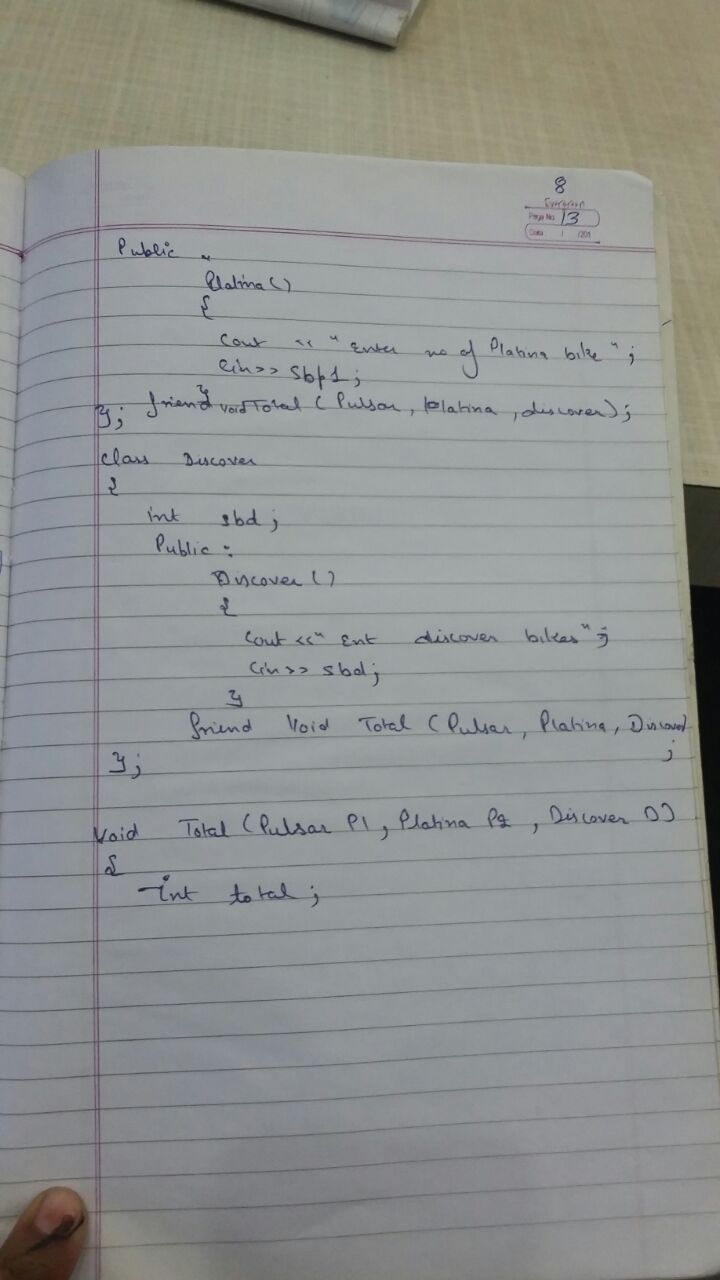 8
Evergreen
Page No. 13
Date / /201
Public :
Platina ()
{
Cout << "Enter no of Platina bike";
Cin>> Sbp1;
}
}; friend void Total (Pulsar, Platina, discover);
Class Discover
{
int sbd;
Public :
Discover ()
{
Cout <<" Ent discover bikes";
Cin>> sbd;
}
friend Void Total (Pulsar, Platina, Discover)
};
;
Void Total (Pulsar P1, Platina P2, Discover D)
{
int total;